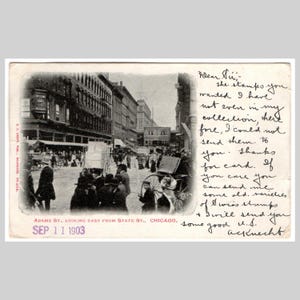 Dear Sir:-
the stamps you
wanted I have
not even in my
collection, there
fore, I could not
send them to
you. Thanks
for card. If
you care you
can send me
some old varieties
of Swiss stamps
& I will send you
some good U.S.
ADAMS ST., LOOKING EAST FROM STATE ST., CHICAGO.
SEP 11 1903